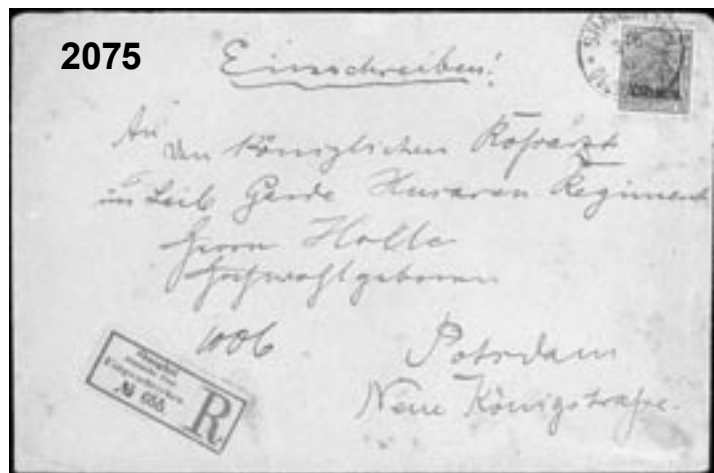 2075
Einschreiben!
An
den Königlichen Roßarzt
im Leib Garde Husaren Regiment
Herrn Holle
Hochwohlgeboren
1006
Potsdam
Neue Königstraße.
№ 655
R